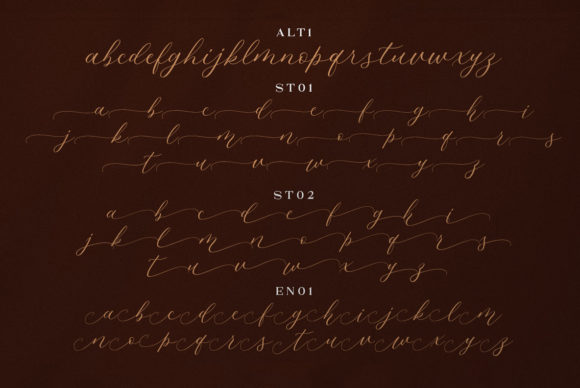 ALT1
abcdefghijklmnopqrstuvwxyz
ST01
a b c d e f g h i
j k l m n o p q r s
t u v w x y z
ST02
a b c d e f g h i
j k l m n o p q r s
t u v w x y z
EN01
a b c d e f g h i j k l m
n o p q r s t u v w x y z